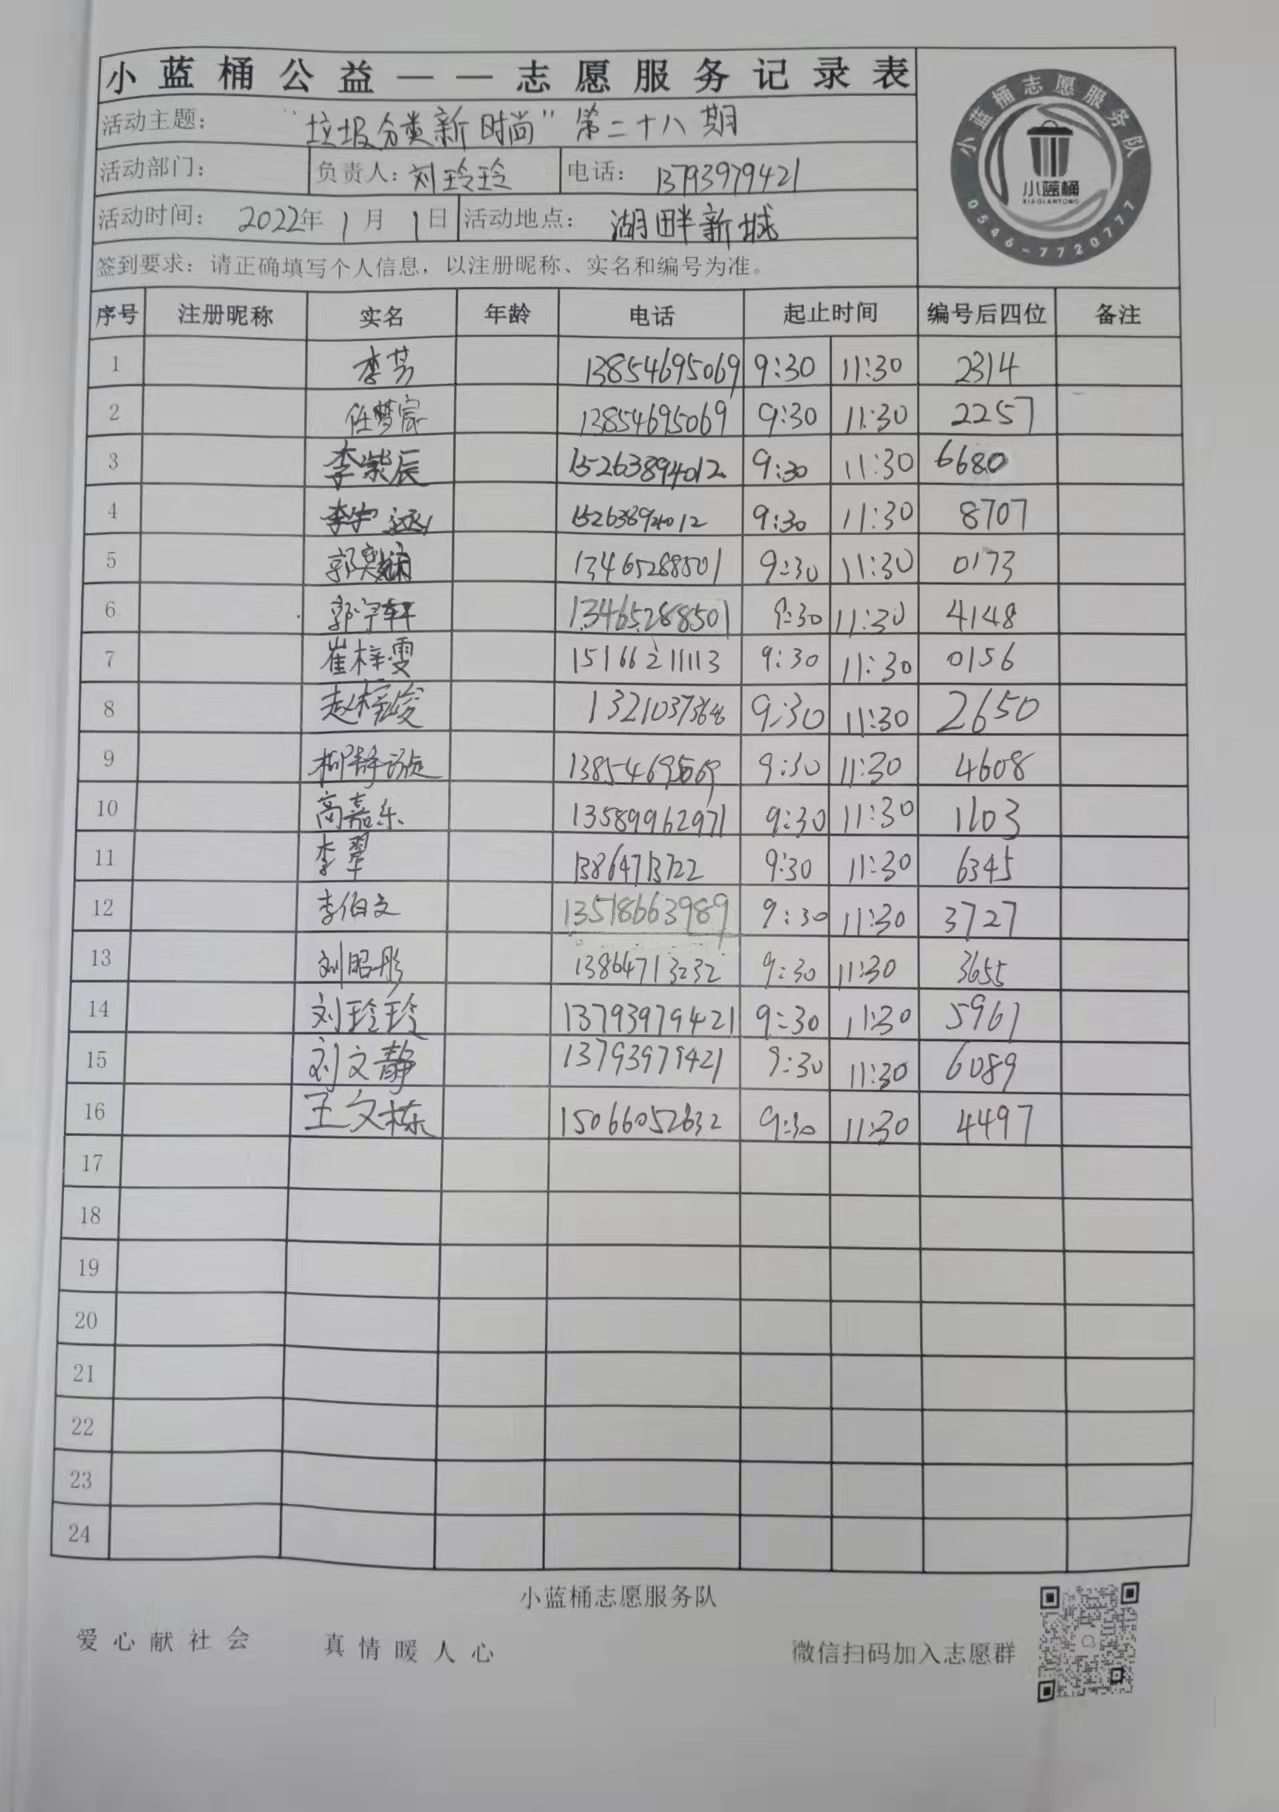 小蓝桶公益——志愿服务记录表
活动主题： “垃圾分类新时尚”第二十八期
活动部门： 负责人：刘玲玲 电话： 13793979421
活动时间： 2022年 1月 1日 活动地点： 湖畔新城
签到要求：请正确填写个人信息，以注册昵称、实名和编号为准。
小蓝桶志愿服务队
小蓝桶
XIAOLANTONG
0546-7720777
序号 注册昵称 实名 年龄 电话 起止时间 编号后四位 备注
1 李芳 13854695069 9:30 11:30 2314
2 任梦宸 13854695069 9:30 11:30 2257
3 李紫辰 15263894012 9:30 11:30 6680
4 李宇 15263894012 9:30 11:30 8707
5 郭奕娴 13465288501 9:30 11:30 0173
6 郭宇轩 13465288501 9:30 11:30 4148
7 崔梓雯 15166211113 9:30 11:30 0156
8 赵梓俊 13210373646 9:30 11:30 2650
9 柳静 13854695069 9:30 11:30 4608
10 高嘉乐 13589962971 9:30 11:30 1103
11 李翠 13864713222 9:30 11:30 6345
12 李伯文 13518663989 9:30 11:30 3727
13 刘昭彤 13864713232 9:30 11:30 3655
14 刘玲玲 13793979421 9:30 11:30 5961
15 刘文静 13793979421 9:30 11:30 6089
16 王文栋 15066052632 9:30 11:30 4497
17
18
19
20
21
22
23
24
小蓝桶志愿服务队
爱心献社会 真情暖人心 微信扫码加入志愿群